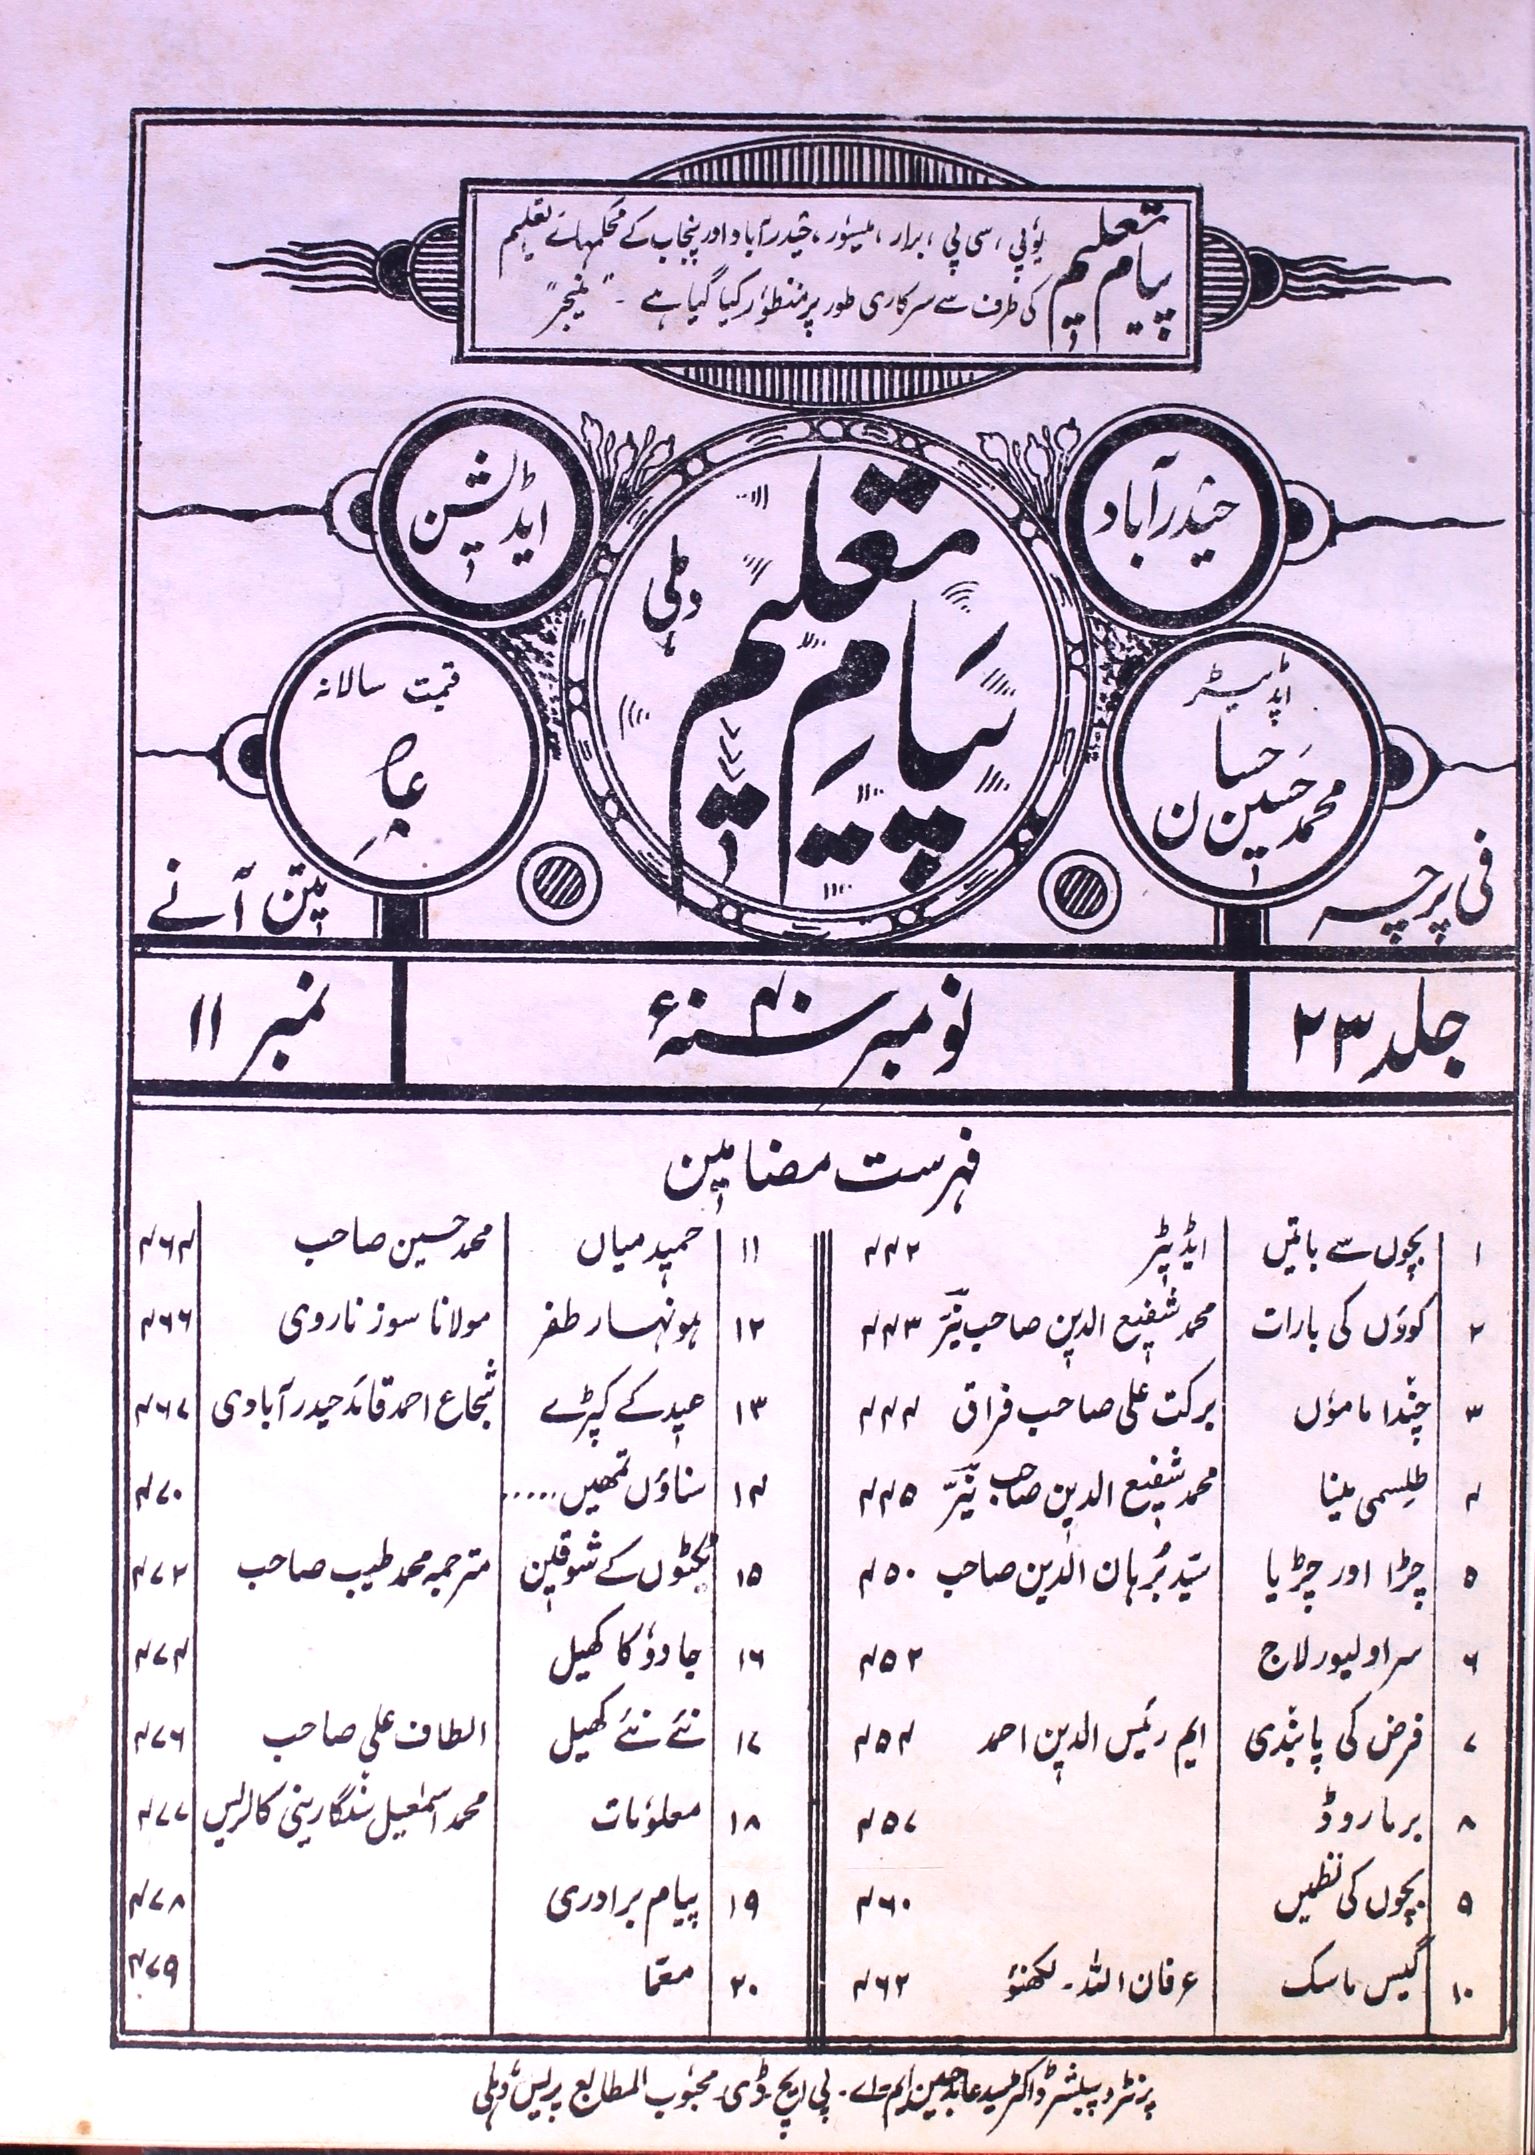 پیام تعلیم یوپی، سی پی، برار، میسور، حیدرآباد اور پنجاب کے محکمہائے تعلیم
کی طرف سے سرکاری طور پر منظور کیا گیا ہے۔ "منیجر"
حیدرآباد
ایڈیشن
پیام تعلیم
دہلی
ایڈیٹر
محمد حسین حسان
قیمت سالانہ
فی پرچہ
تین آنے
جلد ۲۳
نومبر ۴۰ سنہء
نمبر ۱۱
فہرست مضامین
۱ بچوں سے باتیں ایڈیٹر ۴۴۲
۲ کوؤں کی بارات محمد شفیع الدین صاحب نیّر ۴۴۳
۳ چندا ماموں برکت علی صاحب فراق ۴۴۴
۴ طلسمی مینا محمد شفیع الدین صاحب نیّر ۴۴۵
۵ چڑا اور چڑیا سیّد بُرہان الدین صاحب ۴۵۰
۶ سر اولیور لاج ۴۵۲
۷ فرض کی پابندی ایم رئیس الدین احمد ۴۵۴
۸ برما روڈ ۴۵۷
۹ بچوں کی نظمیں ۴۶۰
۱۰ گیس ماسک عرفان اللہ۔ لکھنؤ ۴۶۲
۱۱ حمید میاں محمد حسین صاحب ۴۶۴
۱۲ ہونہار ظفر مولانا سوز ناروی ۴۶۶
۱۳ عید کے کپڑے شجاع احمد قائد حیدرآبادی ۴۶۷
۱۴ سناؤں تمھیں..... ۴۷۰
۱۵ ٹکٹوں کے شوقین مترجمہ محمد طیب صاحب ۴۷۲
۱۶ جادو کا کھیل ۴۷۴
۱۷ نئے نئے کھیل الطاف علی صاحب ۴۷۶
۱۸ معلومات محمد اسمٰعیل سنگارینی کالریس ۴۷۷
۱۹ پیام برادری ۴۷۸
۲۰ معمّا ۴۷۹
پرنٹر و پبلیشر ڈاکٹر سید عابد حسین ایم۔اے۔ پی ایچ۔ ڈی۔ محبوب المطابع پریس دہلی